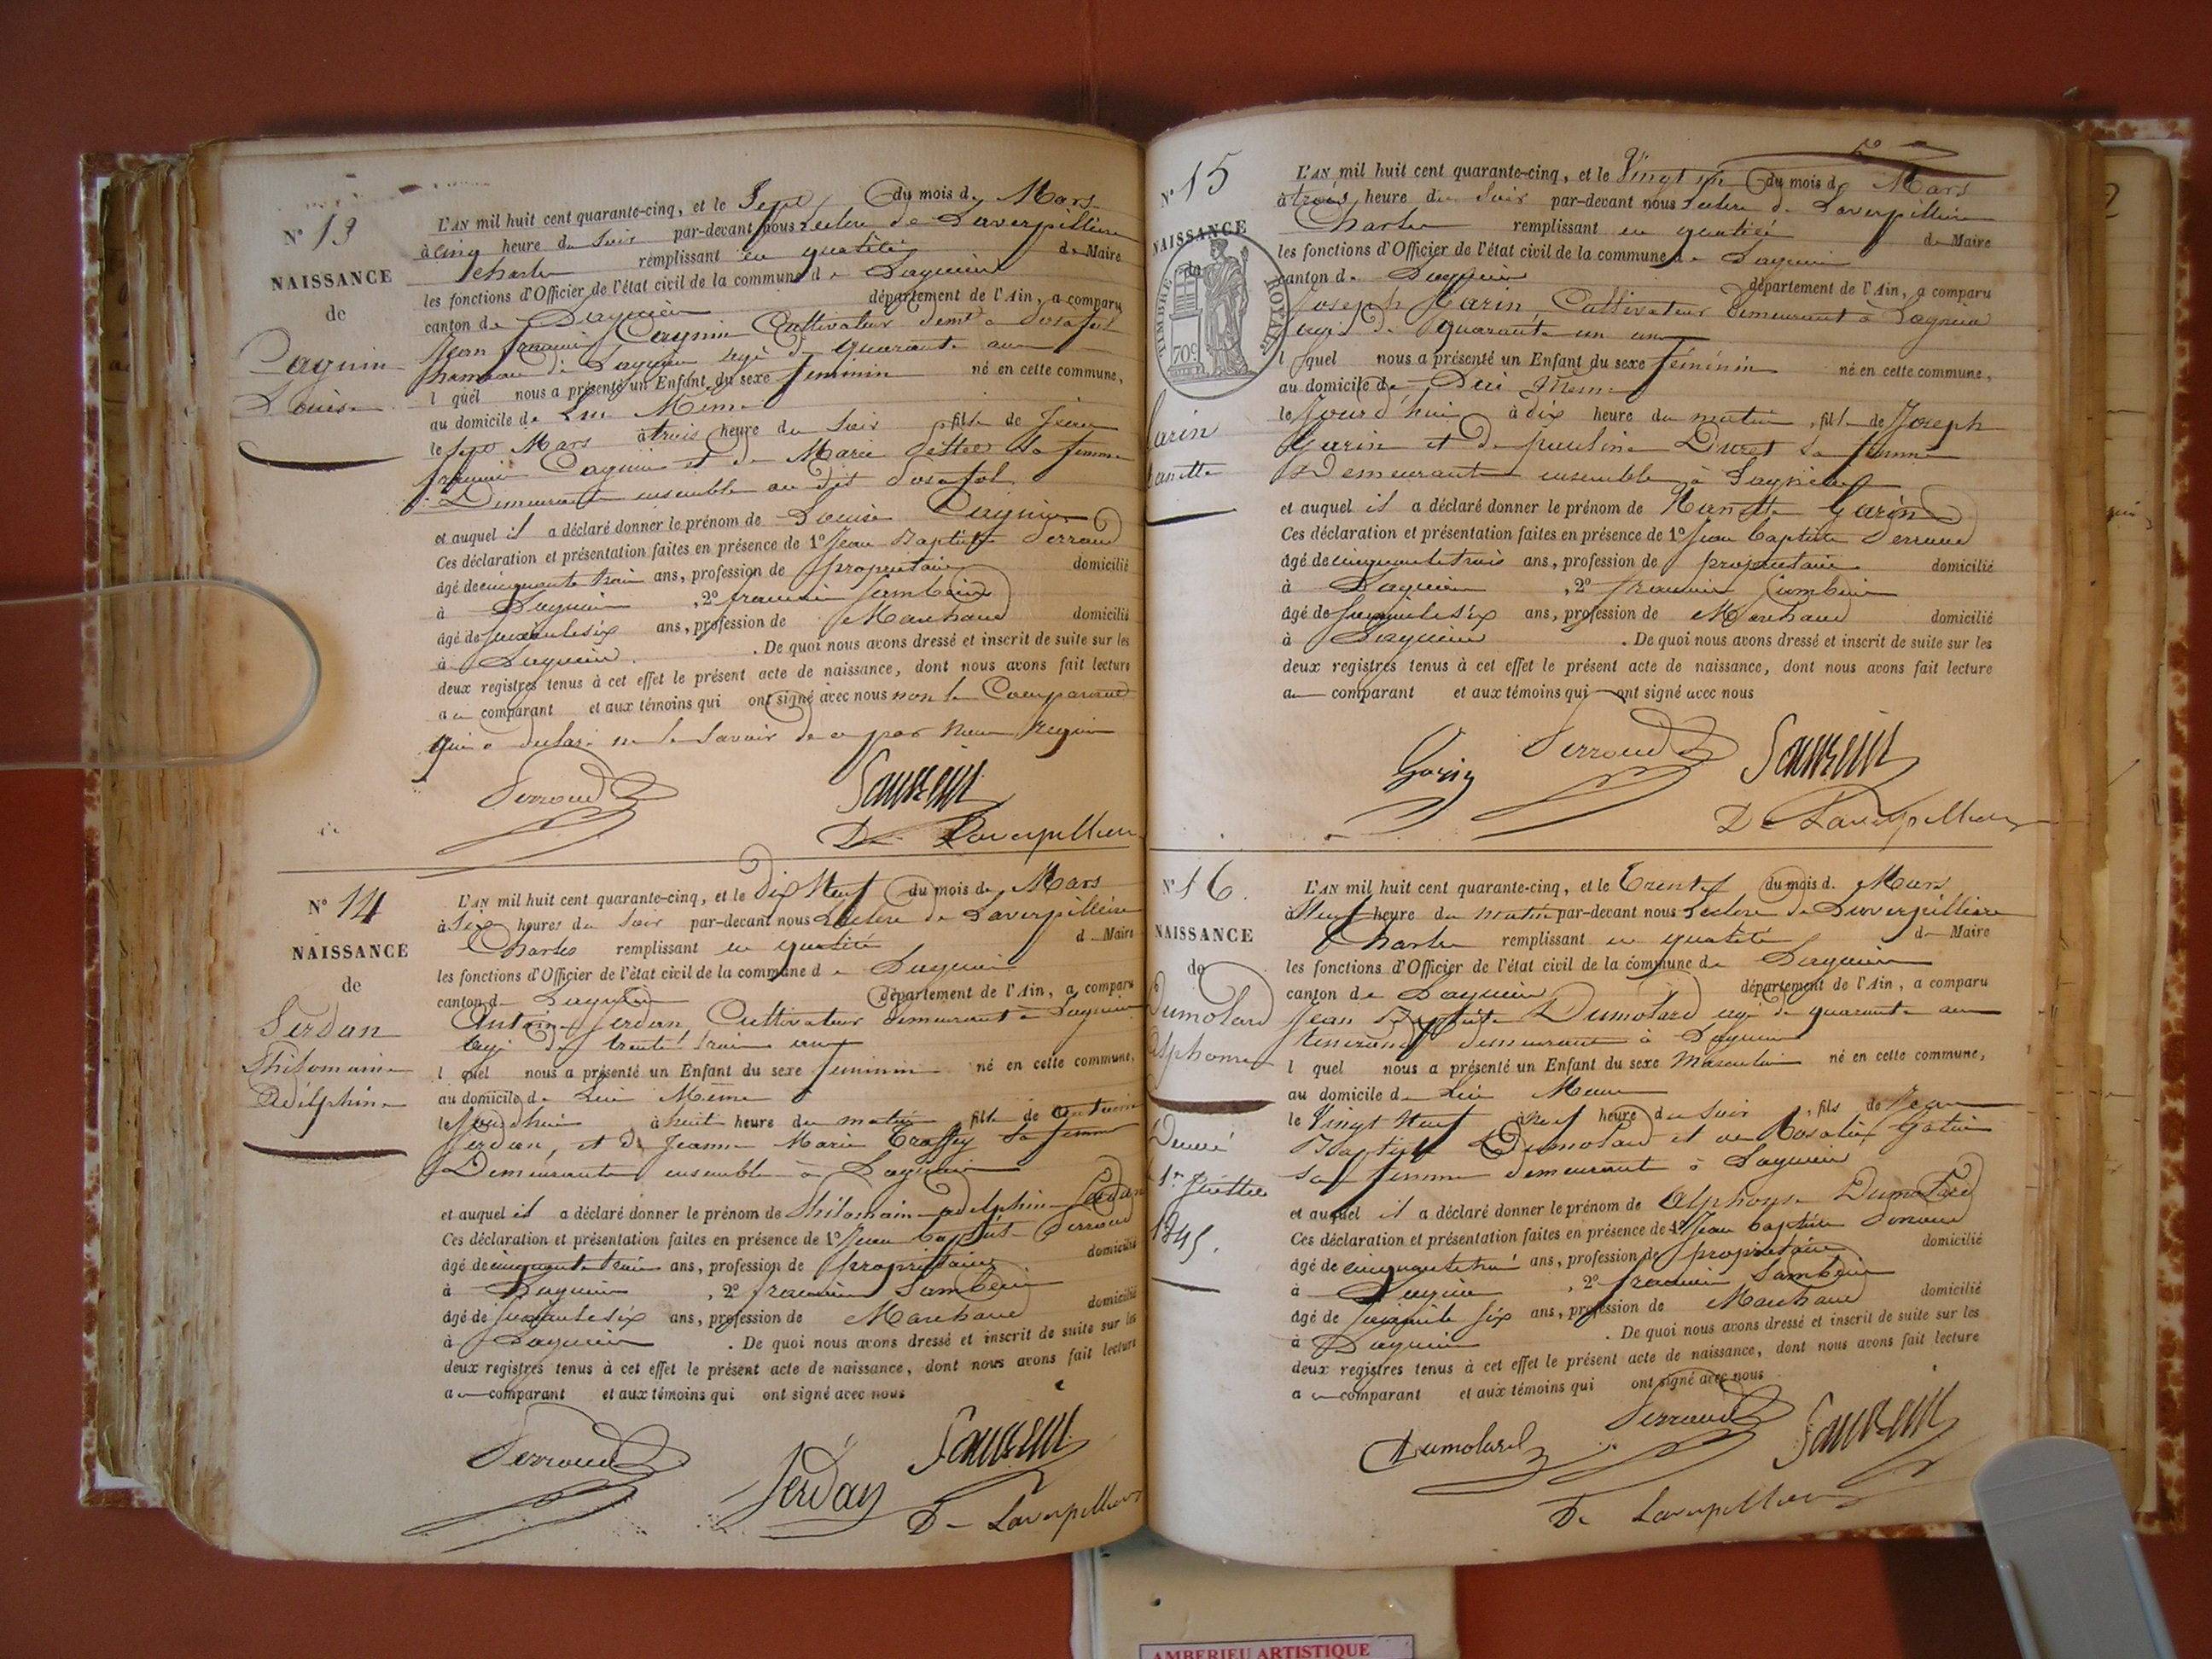 N° 13
NAISSANCE
de
Cagnin
Louise
L'AN mil huit cent quarante-cinq, et le Sept du mois de Mars
à cinq heure du Soir par-devant nous Leclerc de Laverpillière
Charles remplissant en qualité de Maire
les fonctions d'Officier de l'état civil de la commune de Lagnieu
canton de Lagnieu département de l'Ain, a comparu
Jean François Cagnin Cultivateur demt a
hameau de Lagnieu agé de quarante ans
l quel nous a présenté un Enfant du sexe feminin né en cette commune,
au domicile de Lui Meme
le Sept Mars à trois heure du Soir fille de Jean
françois Cagnin et de Marie sa femme
Demeurants ensemble au dit
et auquel il a déclaré donner le prénom de Louise Cagnin
Ces déclaration et présentation faites en présence de 1° Jean Baptiste Serroud
âgé de cinquante trois ans, profession de propriétaire domicilié
à Lagnieu , 2° françois Sambein
âgé de soixante six ans, profession de Marchand domicilié
à Lagnieu . De quoi nous avons dressé et inscrit de suite sur les
deux registres tenus à cet effet le présent acte de naissance, dont nous avons fait lecture
au comparant et aux témoins qui ont signé avec nous non le Comparant
qui a declaré ne le Savoir de ce par nous Requis
Serroud
De Laverpilliere
N° 14
NAISSANCE
de
Serdan
Philomaine
Adelphine
L'AN mil huit cent quarante-cinq, et le Dix Neuf du mois de Mars
à Six heures du Soir par-devant nous Leclerc de Laverpillière
Charles remplissant en qualité de Maire
les fonctions d'Officier de l'état civil de la commune de Lagnieu
canton de Lagnieu département de l'Ain, a comparu
Antoine Serdan Cultivateur demeurant à Lagnieu
agé de trente trois ans
l quel nous a présenté un Enfant du sexe feminin né en cette commune,
au domicile de Lui Meme
le jourdhui à huit heure du matin fille de Antoine
Serdan, et de Jeanne Marie sa femme
Demeurants ensemble à Lagnieu
et auquel il a déclaré donner le prénom de Philomaine adelphine Serdan
Ces déclaration et présentation faites en présence de 1° Jean baptiste Serroud
âgé de cinquante trois ans, profession de propriétaire domicilié
à Lagnieu , 2° françois Sambein
âgé de soixante six ans, profession de Marchand domicilié
à Lagnieu . De quoi nous avons dressé et inscrit de suite sur les
deux registres tenus à cet effet le présent acte de naissance, dont nous avons fait lecture
au comparant et aux témoins qui ont signé avec nous
Serroud
Serdan
De Laverpilliere
N° 15
NAISSANCE
de
TIMBRE ROYAL
70c
Garin
Nanette
L'AN mil huit cent quarante-cinq, et le Vingt six du mois de Mars
à trois heure du Soir par-devant nous Leclerc de Laverpillière
Charles remplissant en qualité de Maire
les fonctions d'Officier de l'état civil de la commune de Lagnieu
canton de Lagnieu département de l'Ain, a comparu
Joseph Garin, Cultivateur demeurant à Lagnieu
agé de quarante un ans
l quel nous a présenté un Enfant du sexe féminin né en cette commune,
au domicile de Lui Meme
le Jourd'hui à dix heure du matin , fille de Joseph
Garin et de pauline Duret sa femme
Demeurants ensemble à Lagnieu
et auquel il a déclaré donner le prénom de Nanette Garin
Ces déclaration et présentation faites en présence de 1° Jean baptiste Serroud
âgé de cinquante trois ans, profession de propriétaire domicilié
à Lagnieu , 2° françois Sambein
âgé de soixante six ans, profession de Marchand domicilié
à Lagnieu . De quoi nous avons dressé et inscrit de suite sur les
deux registres tenus à cet effet le présent acte de naissance, dont nous avons fait lecture
au comparant et aux témoins qui ont signé avec nous
Garin Serroud
De Laverpilliere
N° 16
NAISSANCE
de
Dumolard
Alphonse
Décédé
1er Juillet
1845.
L'AN mil huit cent quarante-cinq, et le Trente du mois de Mars
à Neuf heure du matin par-devant nous Leclerc de Laverpilliere
Charles remplissant en qualité de Maire
les fonctions d'Officier de l'état civil de la commune de Lagnieu
canton de Lagnieu département de l'Ain, a comparu
Jean Baptiste Dumolard agé de quarante ans
demeurant à Lagnieu
l quel nous a présenté un Enfant du sexe Masculin né en cette commune,
au domicile de Lui Meme
le Vingt Neuf à Neuf heure du Soir , fils de Jean
Baptiste Dumolard et de Rosalie
sa femme demeurant à Lagnieu
et auquel il a déclaré donner le prénom de Alphonse Dumolard
Ces déclaration et présentation faites en présence de 1° Jean baptiste Serroud
âgé de cinquante trois ans, profession de propriétaire domicilié
à Lagnieu , 2° françois Sambein
âgé de soixante six ans, profession de Marchand domicilié
à Lagnieu . De quoi nous avons dressé et inscrit de suite sur les
deux registres tenus à cet effet le présent acte de naissance, dont nous avons fait lecture
au comparant et aux témoins qui ont signé avec nous
Dumolard Serroud
De Laverpilliere
AMBERIEU ARTISTIQUE